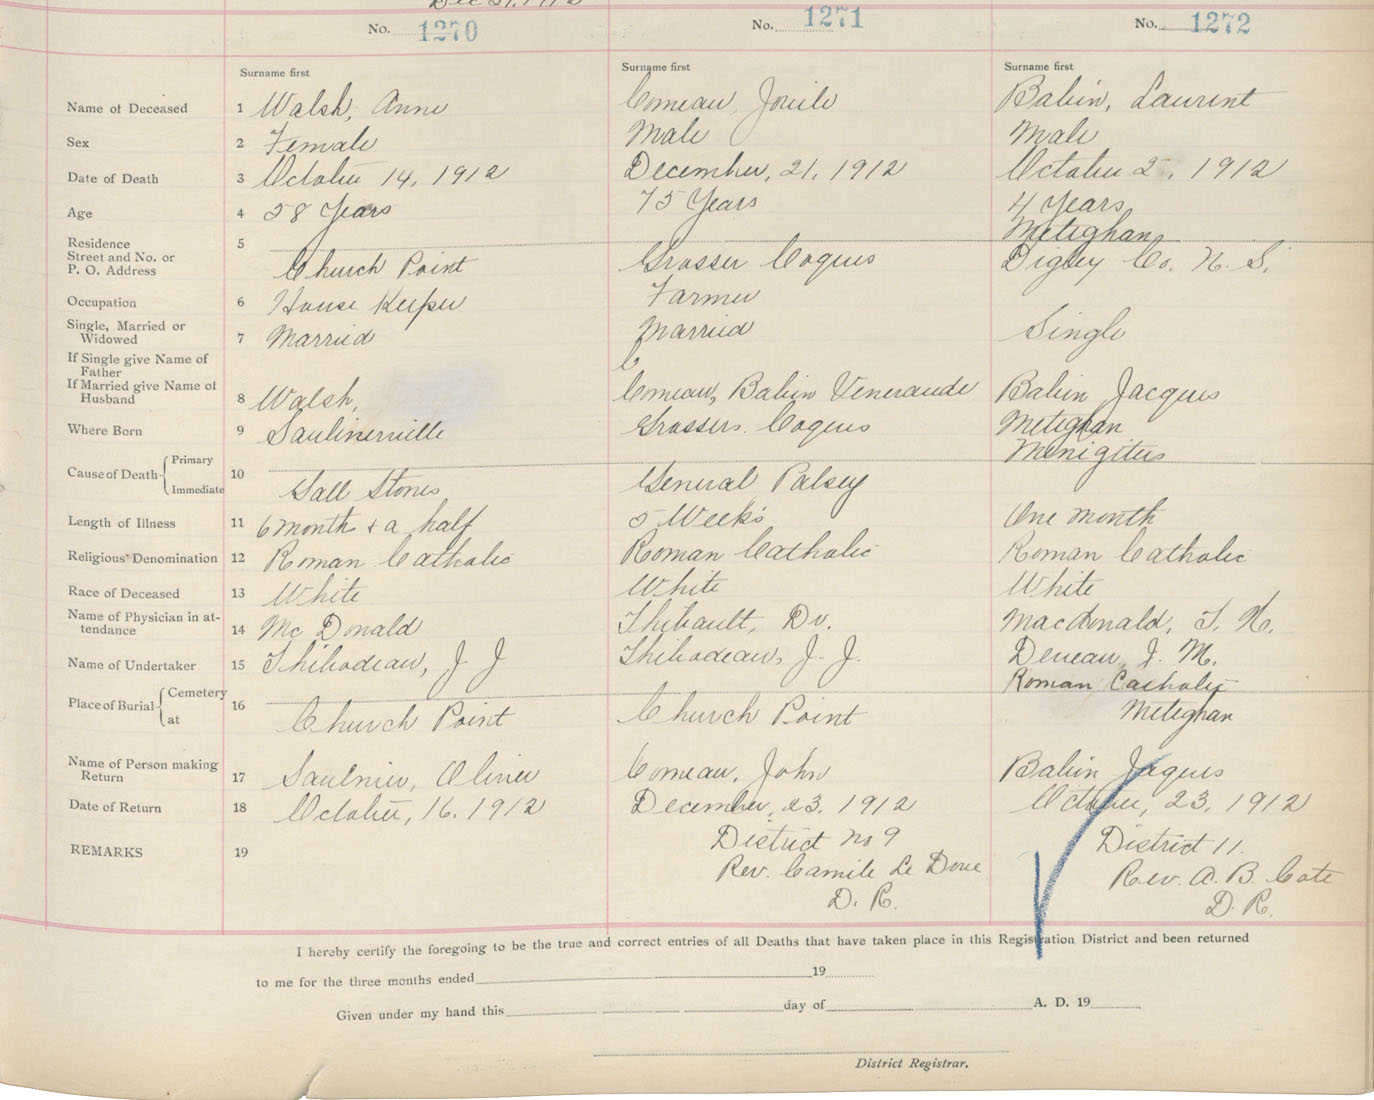 Dec 21, 1912
No. 1270 No. 1271 No. 1272
Surname first Surname first Surname first
Name of Deceased 1 Walsh, Anne Comeau, Babin, Laurent
Sex 2 Female Male Male
Date of Death 3 October 14, 1912 December, 21, 1912 October 2 , 1912
Age 4 58 Years 75 Years 4 Years
Residence 5 Meteghan
Street and No. or
P. O. Address Church Point Grosser Coques Digby Co. N. S.
Occupation 6 House Keeper Farmer
Single, Married or
Widowed 7 Married Married Single
If Single give Name of
Father C
If Married give Name of
Husband 8 Walsh, Comeau, Babin Venerande Babin Jacques
Where Born 9 Saulinerville Grossers. Coques Meteghan
Cause of Death Primary 10 Menigitus
Immediate Gall Stones General Palsey
Length of Illness 11 6 month & a half 5 Weeks One month
Religious Denomination 12 Roman Catholic Roman Catholic Roman Catholic
Race of Deceased 13 White White White
Name of Physician in at-
tendance 14 Mc Donald Thibault, Dr. MacDonald, T. H.
Name of Undertaker 15 Thibodeau, J J Thibodeau, J. J. Deveau, J. M.
Place of Burial Cemetery 16 Roman Catholic
at Church Point Church Point Meteghan
Name of Person making
Return 17 Saulnier, Olivier Comeau, John Babin Jaques
Date of Return 18 October, 16. 1912 December, 23, 1912 October, 23, 1912
REMARKS 19 District No 9 District 11.
Rev. Camile Le Doue Rev. A. B. Cote
D. R. D. R.
I hereby certify the foregoing to be the true and correct entries of all Deaths that have taken place in this Registration District and been returned
to me for the three months ended 19
Given under my hand this day of A. D. 19
District Registrar.